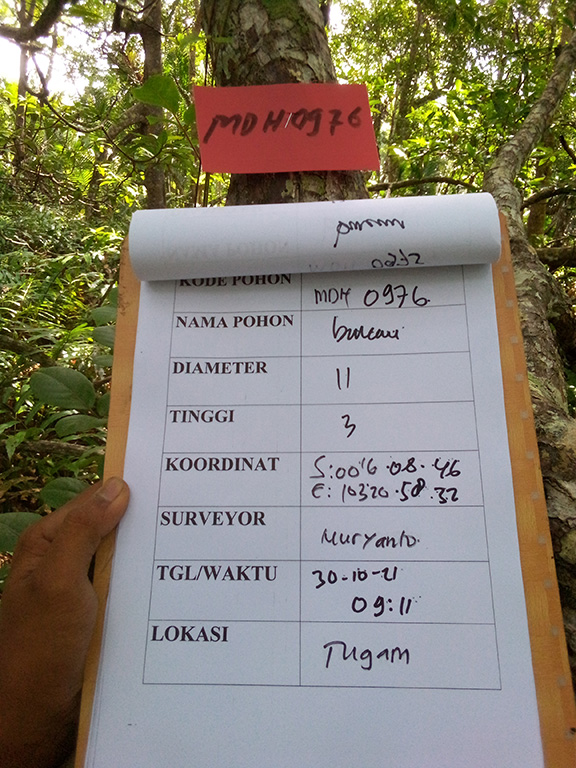 MDH 0976
KODE POHON MDH 0976
NAMA POHON
DIAMETER 11
TINGGI 3
KOORDINAT S:0016.08.46
E: 10320.58.32
SURVEYOR Muryanto
TGL/WAKTU 30-10-21
09:11
LOKASI Tugam